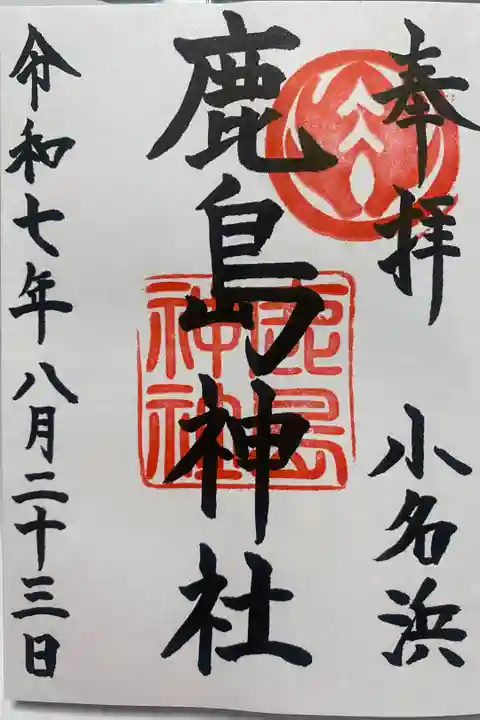 奉拝 小名浜
鹿島神社
鹿島神社
令和七年八月二十三日